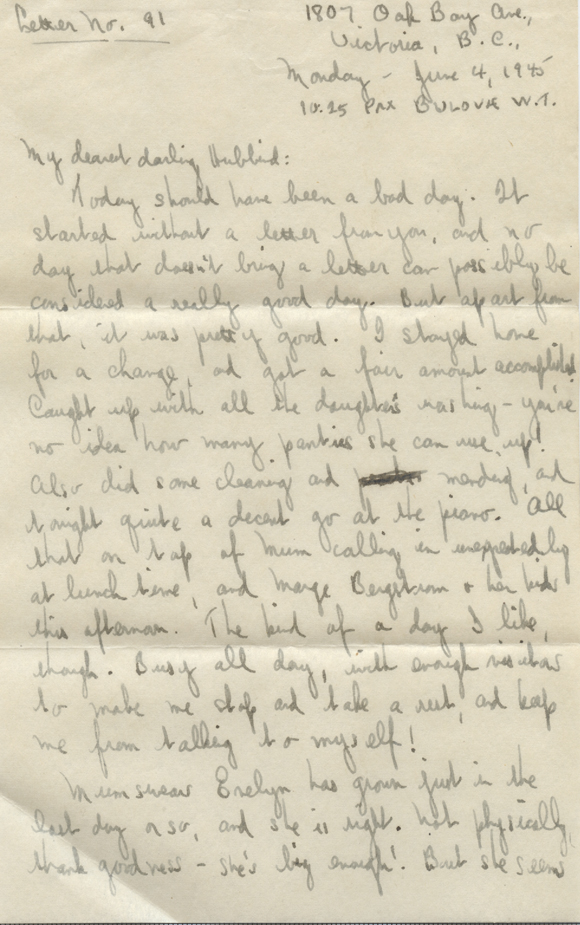 Letter No. 91
1807 Oak Bay Ave.,
Victoria, B.C.,
Monday - June 4, 1945
10.25 PM BULOVA W.T.
My dearest darling Hubbind:
Today should have been a bad day. It
started without a letter from you, and no
day that doesn't bring a letter can possibly be
considered a really good day. But apart from
that, it was pretty good. I stayed home
for a change, and got a fair amount accomplished
Caught up with all the daughter's washing - you've
no idea how many panties she can use up!
Also did some cleaning and mending, and
tonight quite a decent go at the piano. All
that on top of Mum calling in unexpectedly
at lunch time, and Marge Bergstrom & her kids
this afternoon. The kind of a day I like,
though. Busy all day, with enough visitors
to make me stop and take a rest, and keep
me from talking to myself!
Mum swears Evelyn has grown just in the
last day or so, and she is right. Not physically,
thank goodness - she's big enough! But she seems